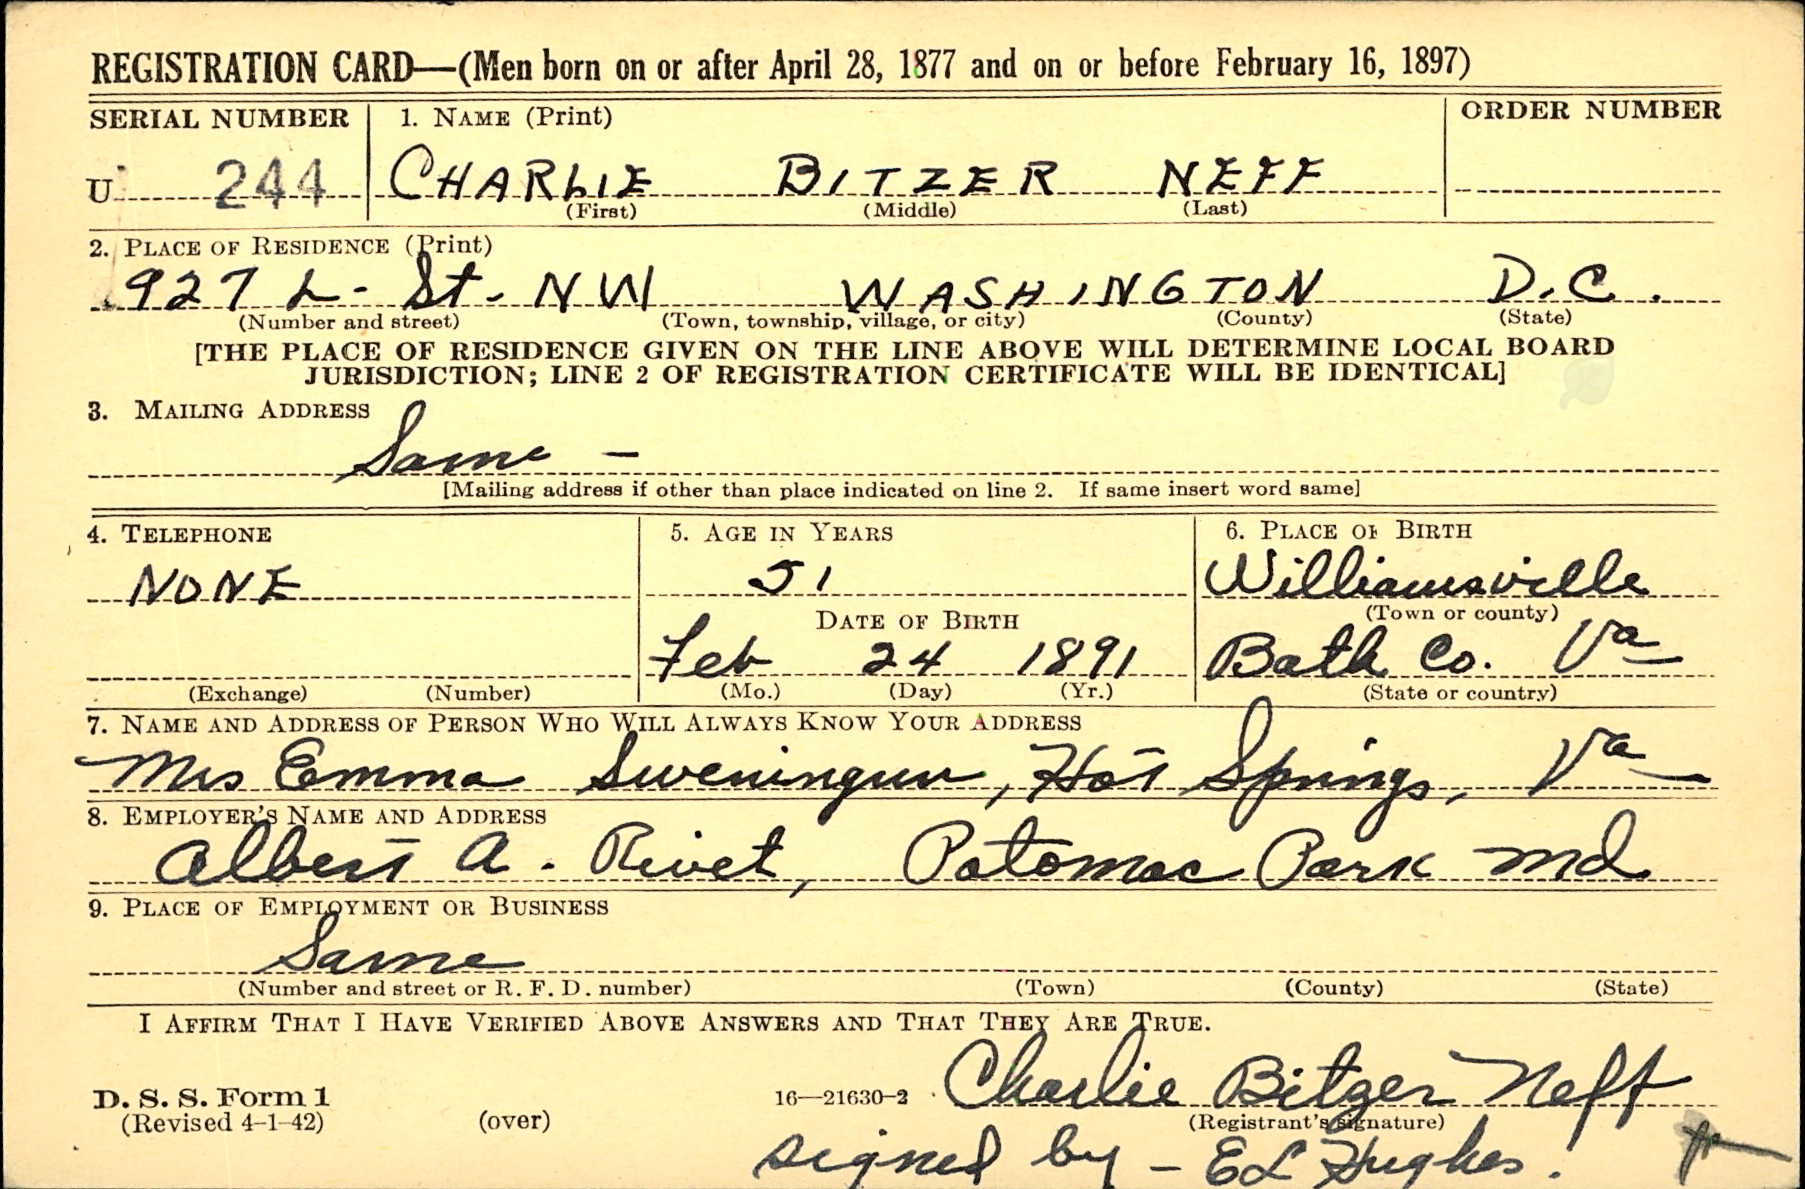 REGISTRATION CARD—(Men born on or after April 28, 1877 and on or before February 16, 1897)
SERIAL NUMBER 1. NAME (Print) ORDER NUMBER
U 244 CHARLIE BITZER NEFF
(First) (Middle) (Last)
2. PLACE OF RESIDENCE (Print)
927 L - St. NW WASHINGTON D.C.
(Number and street) (Town, township, village, or city) (County) (State)
[THE PLACE OF RESIDENCE GIVEN ON THE LINE ABOVE WILL DETERMINE LOCAL BOARD
JURISDICTION; LINE 2 OF REGISTRATION CERTIFICATE WILL BE IDENTICAL]
3. MAILING ADDRESS
Same -
[Mailing address if other than place indicated on line 2. If same insert word same]
4. TELEPHONE 5. AGE IN YEARS 6. PLACE OF BIRTH
NONE 51 Williamsville
DATE OF BIRTH (Town or county)
Feb 24 1891 Bath Co. Va
(Exchange) (Number) (Mo.) (Day) (Yr.) (State or country)
7. NAME AND ADDRESS OF PERSON WHO WILL ALWAYS KNOW YOUR ADDRESS
Mrs Emma , Hot Springs, Va
8. EMPLOYER'S NAME AND ADDRESS
Albert A. Rivet, Potomac Park Md
9. PLACE OF EMPLOYMENT OR BUSINESS
Same
(Number and street or R. F. D. number) (Town) (County) (State)
I AFFIRM THAT I HAVE VERIFIED ABOVE ANSWERS AND THAT THEY ARE TRUE.
D. S. S. Form 1
(Revised 4-1-42) (over) 16—21630-2 Charlie Bitzer Neff
(Registrant's signature)
signed by - EL Hughes.